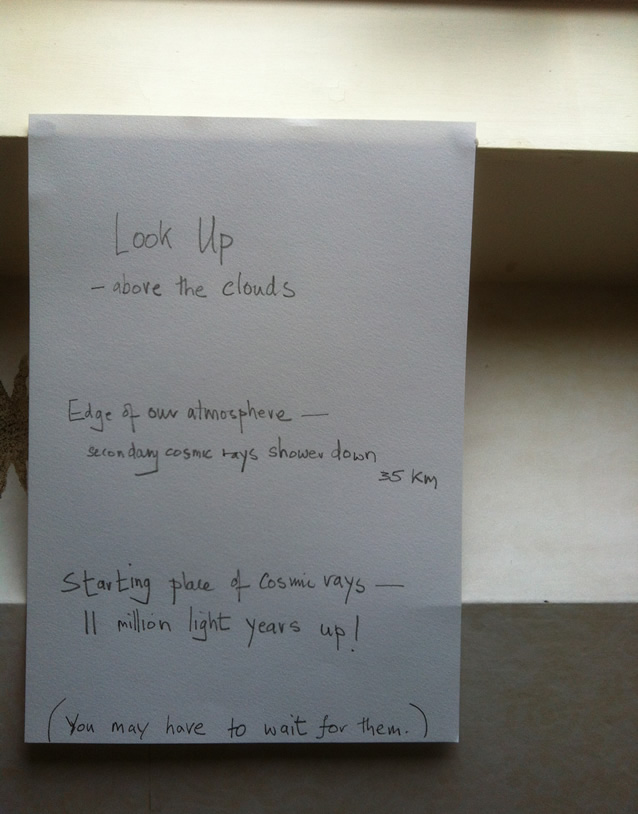 Look Up
- above the clouds
Edge of our atmosphere —
secondary cosmic rays shower down
35 Km
Starting place of cosmic rays —
11 million light years up!
(You may have to wait for them.)